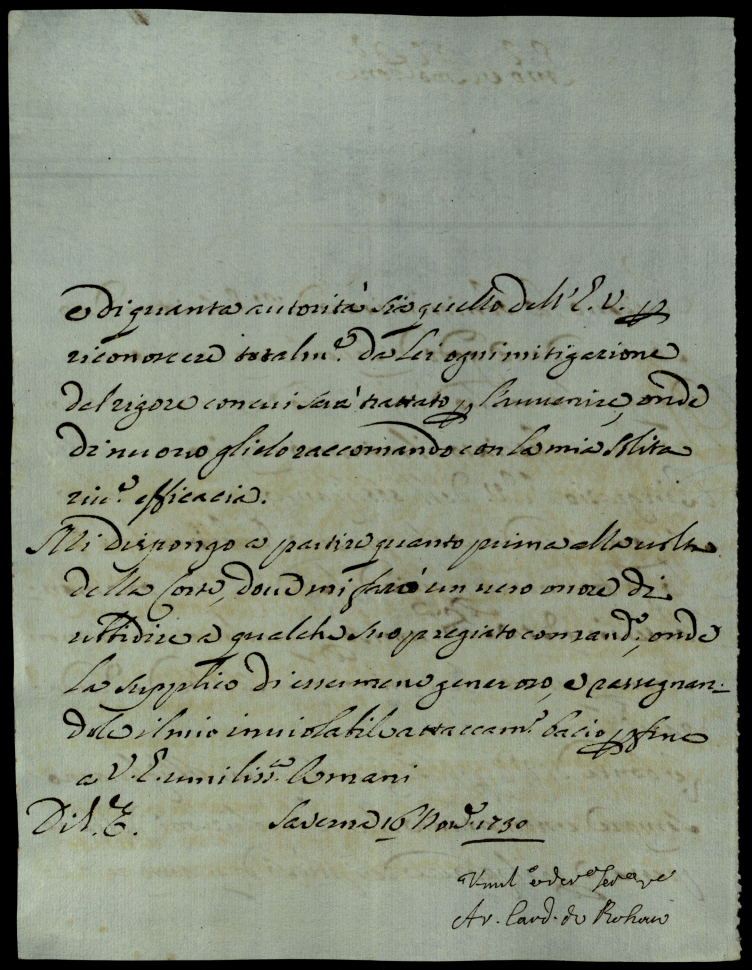 e di quanta autorità sia quello dell' E. V. p
riconoscere totalm.e da Lei ogni mitigazione
del rigore con cui sarà trattato p l'auuenire, onde
di nuouo glielo raccomando con la mia solita
riu.e efficacia.
Mi dispongo a partire quanto prima alla uolta
della Corte, doue mi farò un uero onore di
ubbidire a qualche suo pregiato comand.o, onde
la supplico di essermene generoso, e rassegnan-
dole il mio inuiolabile attaccam.o bacio p fine
a V. E. umiliss.e le mani
Di V. E. Saverna 16 Nov.e 1730
Umil.o e dev.o
Ar. Card. de Rohan